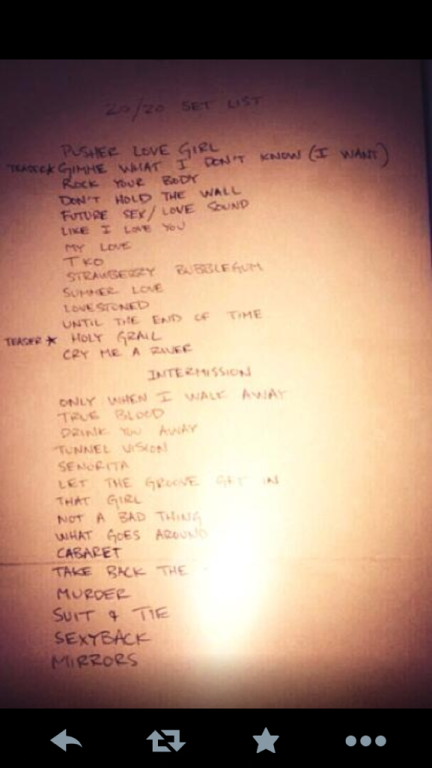 20/20 SET LIST
PUSHER LOVE GIRL
TEASER★ GIMME WHAT I DON'T KNOW (I WANT)
ROCK YOUR BODY
DON'T HOLD THE WALL
FUTURE SEX/LOVE SOUND
LIKE I LOVE YOU
MY LOVE
TKO
STRAWBERRY BUBBLEGUM
SUMMER LOVE
LOVESTONED
UNTIL THE END OF TIME
TEASER★ HOLY GRAIL
CRY ME A RIVER
INTERMISSION
ONLY WHEN I WALK AWAY
TRUE BLOOD
DRINK YOU AWAY
TUNNEL VISION
SENORITA
LET THE GROOVE GET IN
THAT GIRL
NOT A BAD THING
WHAT GOES AROUND
CABARET
TAKE BACK THE
MURDER
SUIT & TIE
SEXYBACK
MIRRORS